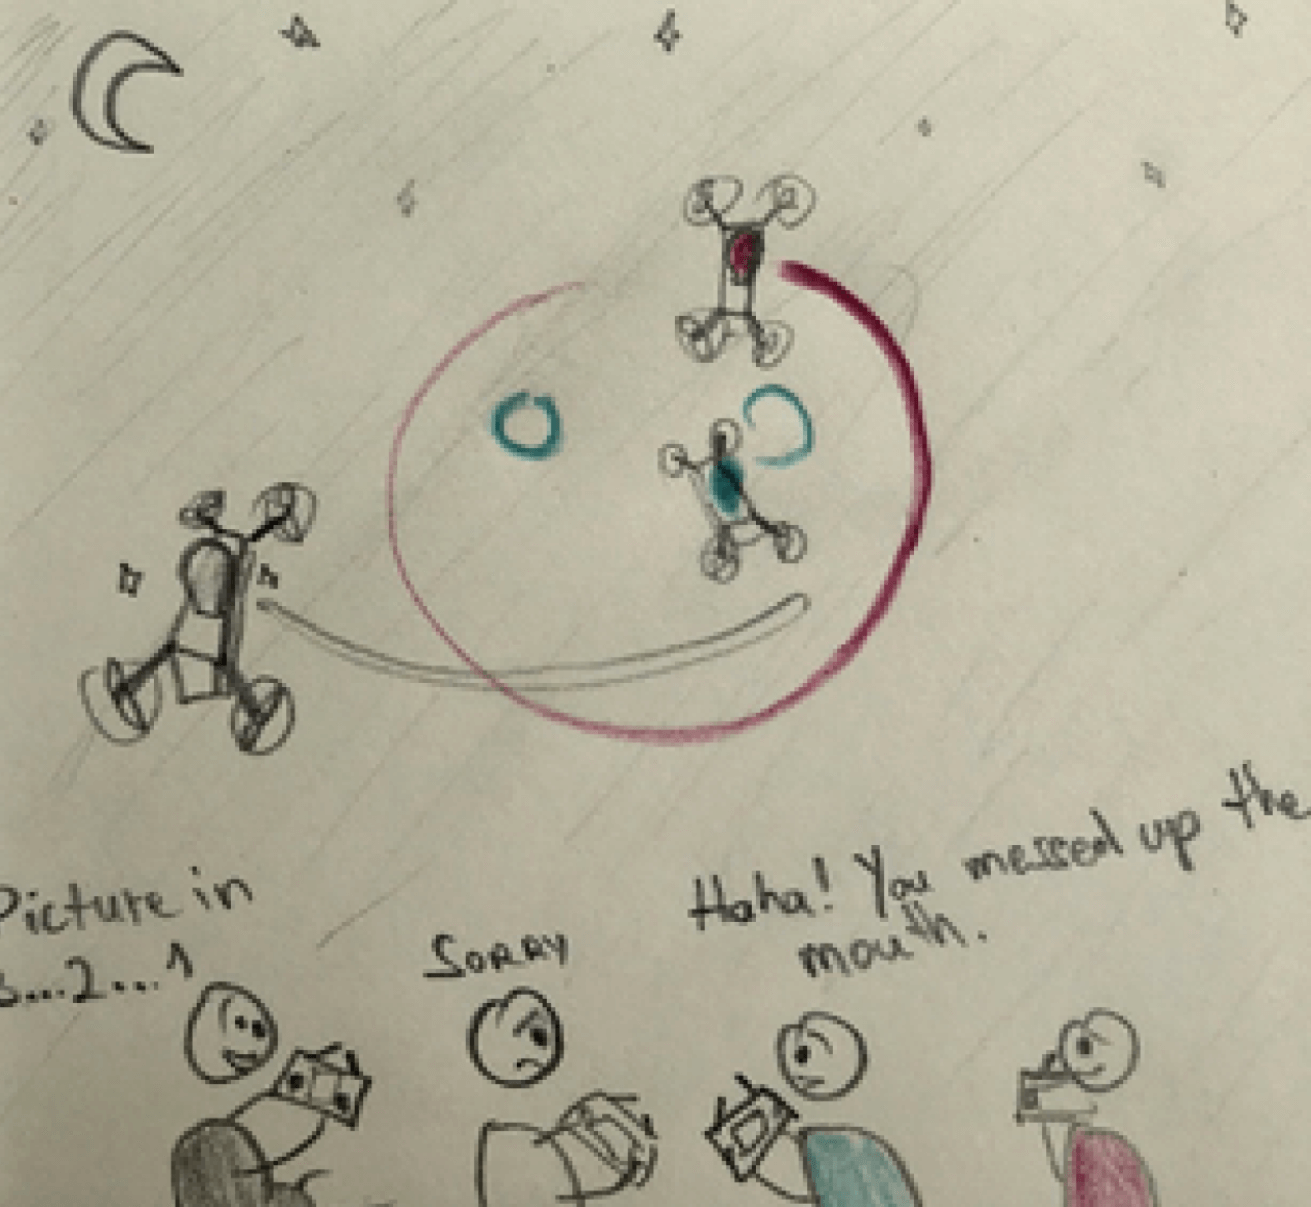 Picture in
3...2...1
SORRY
Haha! You messed up the
mouth.